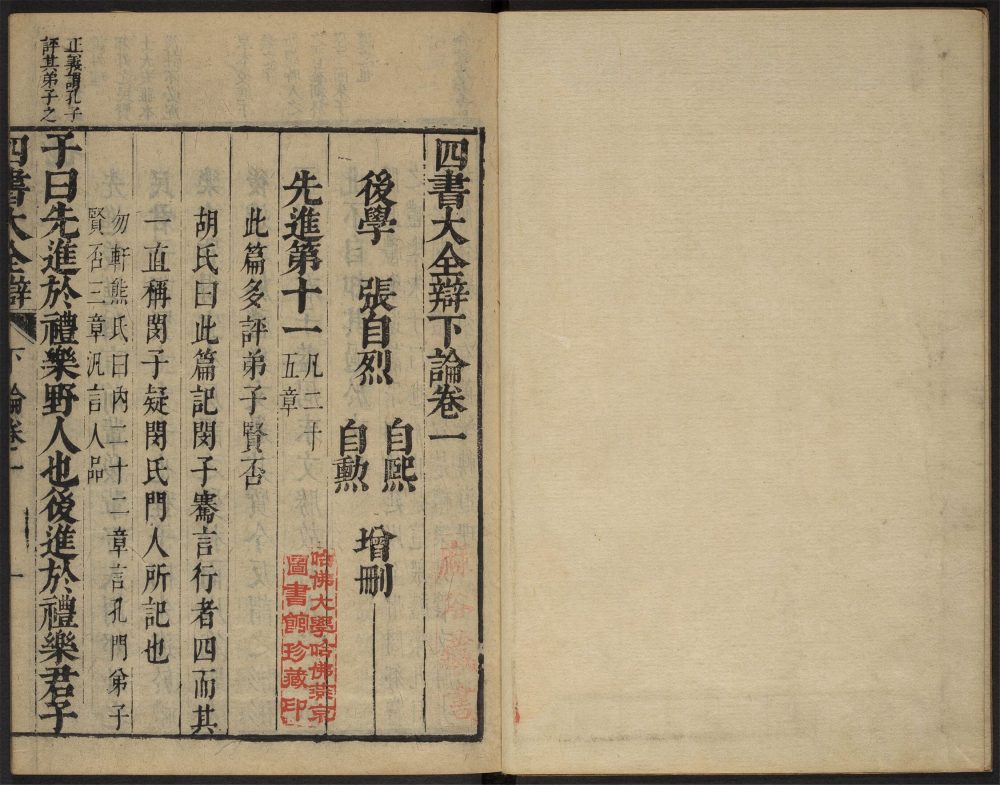 四書大全辯下論卷一
後學 張自烈 自熙 自勲 增刪
先進第十一 凡二十五章
此篇多評弟子賢否
胡氏曰此篇記閔子騫言行者四而其
一直稱閔子疑閔氏門人所記也
勿軒熊氏曰內二十二章言孔門弟子
賢否三章汎言人品
子曰先進於禮樂野人也後進於禮樂君子
四書大全辯 下論卷一 一
正義謂孔子
評其弟子之
哈佛大學哈佛燕京
圖書館珍藏印